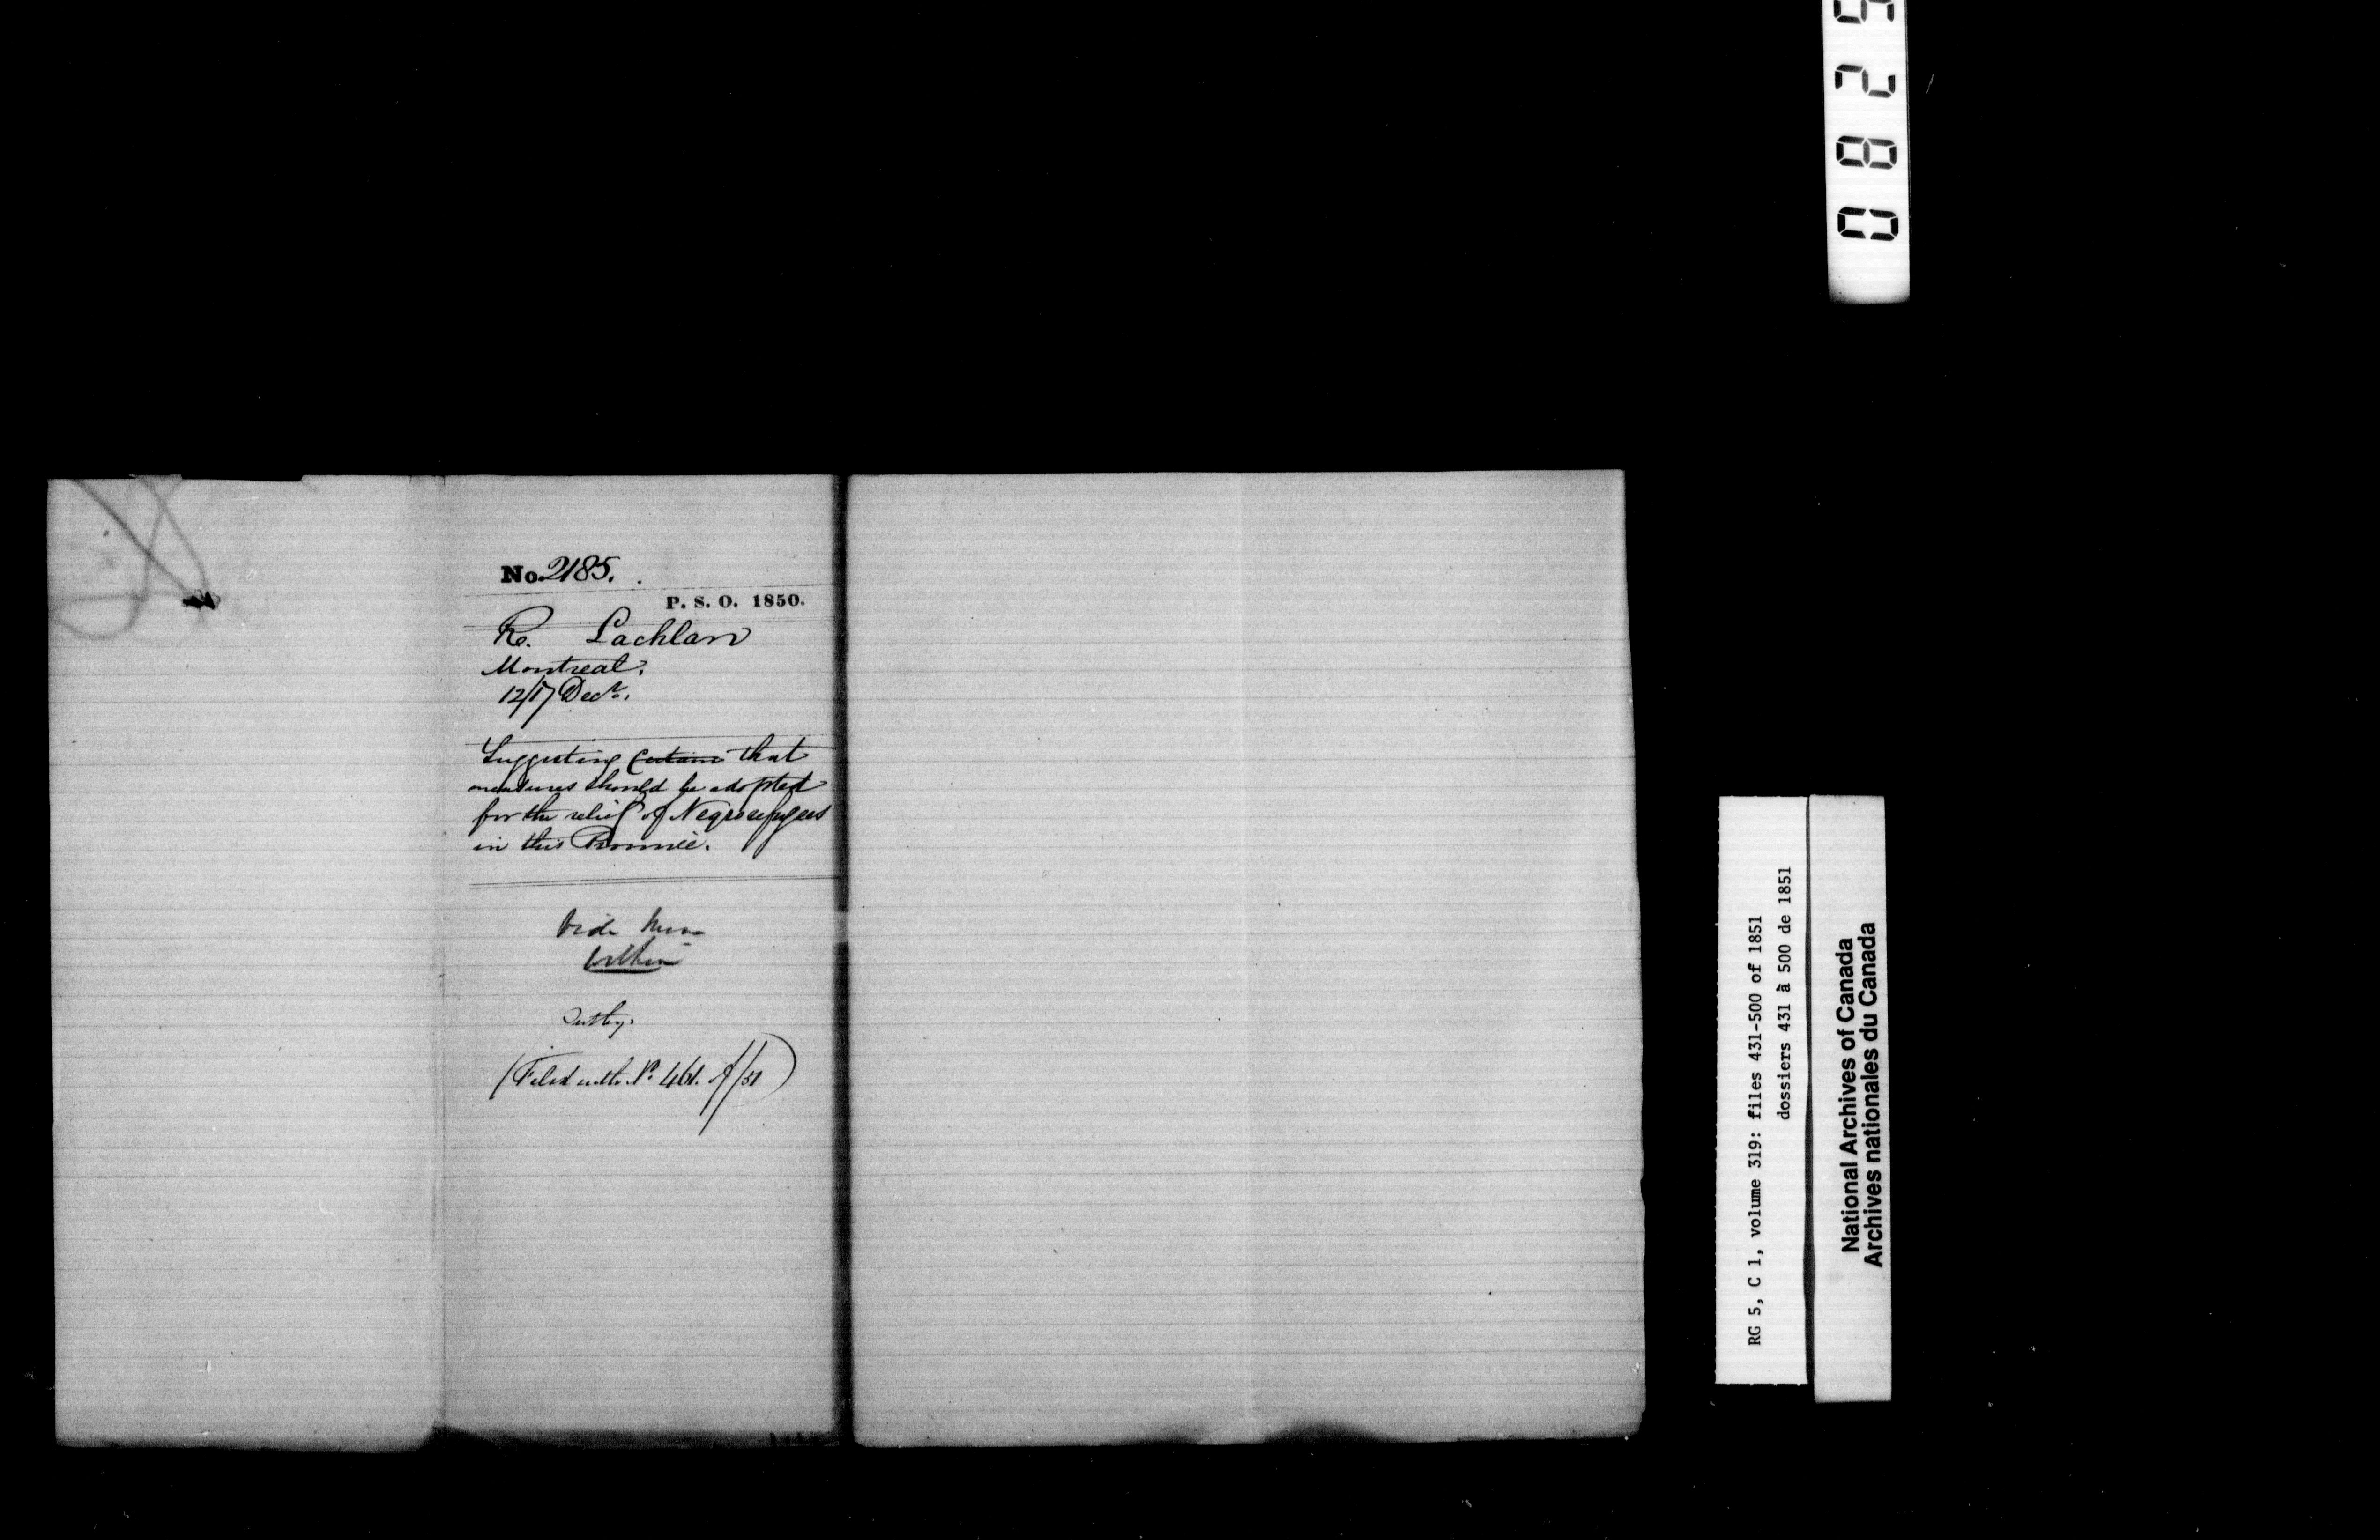 No. 2185.
P. S. O. 1850.
R. Lachlan
Montreal.
12/17 Decr.
Suggesting Certain that
measures should be adopted
for the relief of Negro refugees
in this Province.
Vide
within
(Filed with No 461. of/51)
0825
RG 5, C 1, volume 319: files 431-500 of 1851
dossiers 431 à 500 de 1851
National Archives of Canada
Archives nationales du Canada